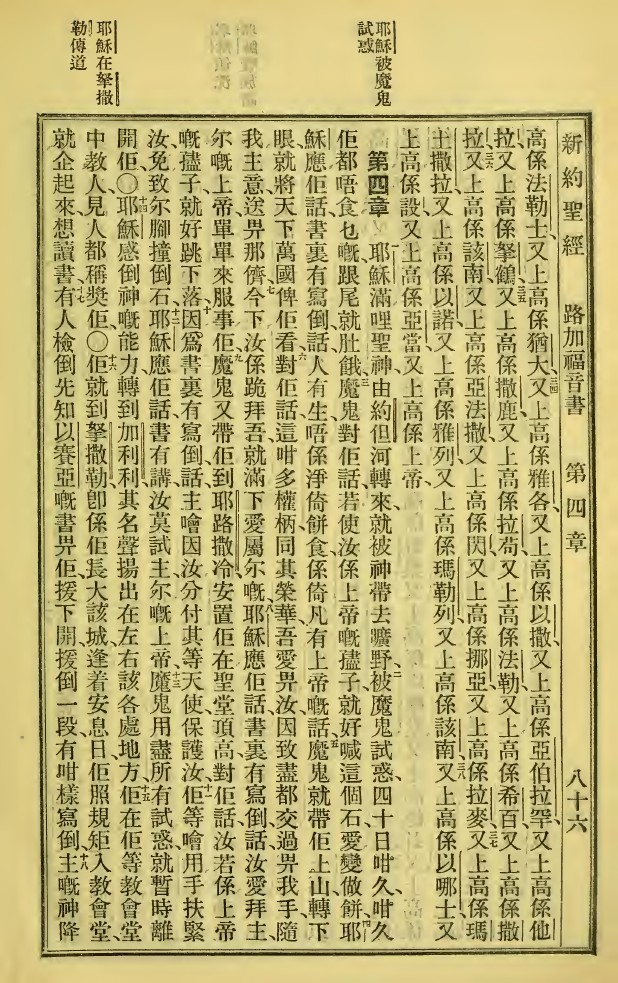 耶穌被魔鬼
試惑
耶穌在拏撒
勒傳道
新約聖經 路加福音書 第四章 八十六
高係法勒士、又上高係猶大、三四又上高係雅各、又上高係以撒、又上高係亞伯拉罕、又上高係他
拉、又上高係拏鶴、三五又上高係撒鹿、又上高係拉苟、又上高係法勒、又上高係希百、又上高係撒
拉、三六又上高係該南、又上高係亞法撒、又上高係閃、又上高係挪亞、又上高係拉麥、三七又上高係瑪
土撒拉、又上高係以諾、又上高係雅列、又上高係瑪勒列、又上高係該南、三八又上高係以哪士、又
上高係設、又上高係亞當、又上高係上帝、
第四章 一耶穌滿哩聖神、由約但河轉來、就被神帶去曠野、二被魔鬼試惑、四十日咁久、咁久
佢都唔食乜嘅、跟尾就肚餓、三魔鬼對佢話、若使汝係上帝嘅孻子、就好喊這個石愛變做餅、四耶
穌應佢話、書裏有寫倒話、人有生唔係淨倚餅食、係倚凡有上帝嘅話、五魔鬼就帶佢上山、轉下
眼就將天下萬國俾佢看、六對佢話、這咁多權柄、同其榮華、吾愛畀汝、因致盡都交過畀我手、隨
我主意送畀那儕、七今下汝係跪拜吾、就滿下愛屬尔嘅、八耶穌應佢話、書裏有寫倒話、汝愛拜主、
尔嘅上帝、單單來服事佢、九魔鬼又帶佢到耶路撒冷、安置佢在聖堂頂高、對佢話、汝若係上帝
嘅孻子、就好跳下落、十因爲書裏有寫倒話、主噲因汝分付其等天使保護汝、十一佢等噲用手扶緊
汝、免致尔腳撞倒石、十二耶穌應佢話、書有講、汝莫試主尔嘅上帝、十三魔鬼用盡所有試惑、就暫時離
開佢、〇十四耶穌感倒神嘅能力、轉到加利利、其名聲揚出在左右該各處地方、十五佢在佢等教會堂
中教人、見人都稱獎佢、〇十六佢就到拏撒勒、卽係佢長大該城、逢着安息日、佢照規矩入教會堂、
就企起來想讀書、十七有人檢倒先知以賽亞嘅書畀佢、援下開、援倒一段、有咁樣寫倒、十八主嘅神降